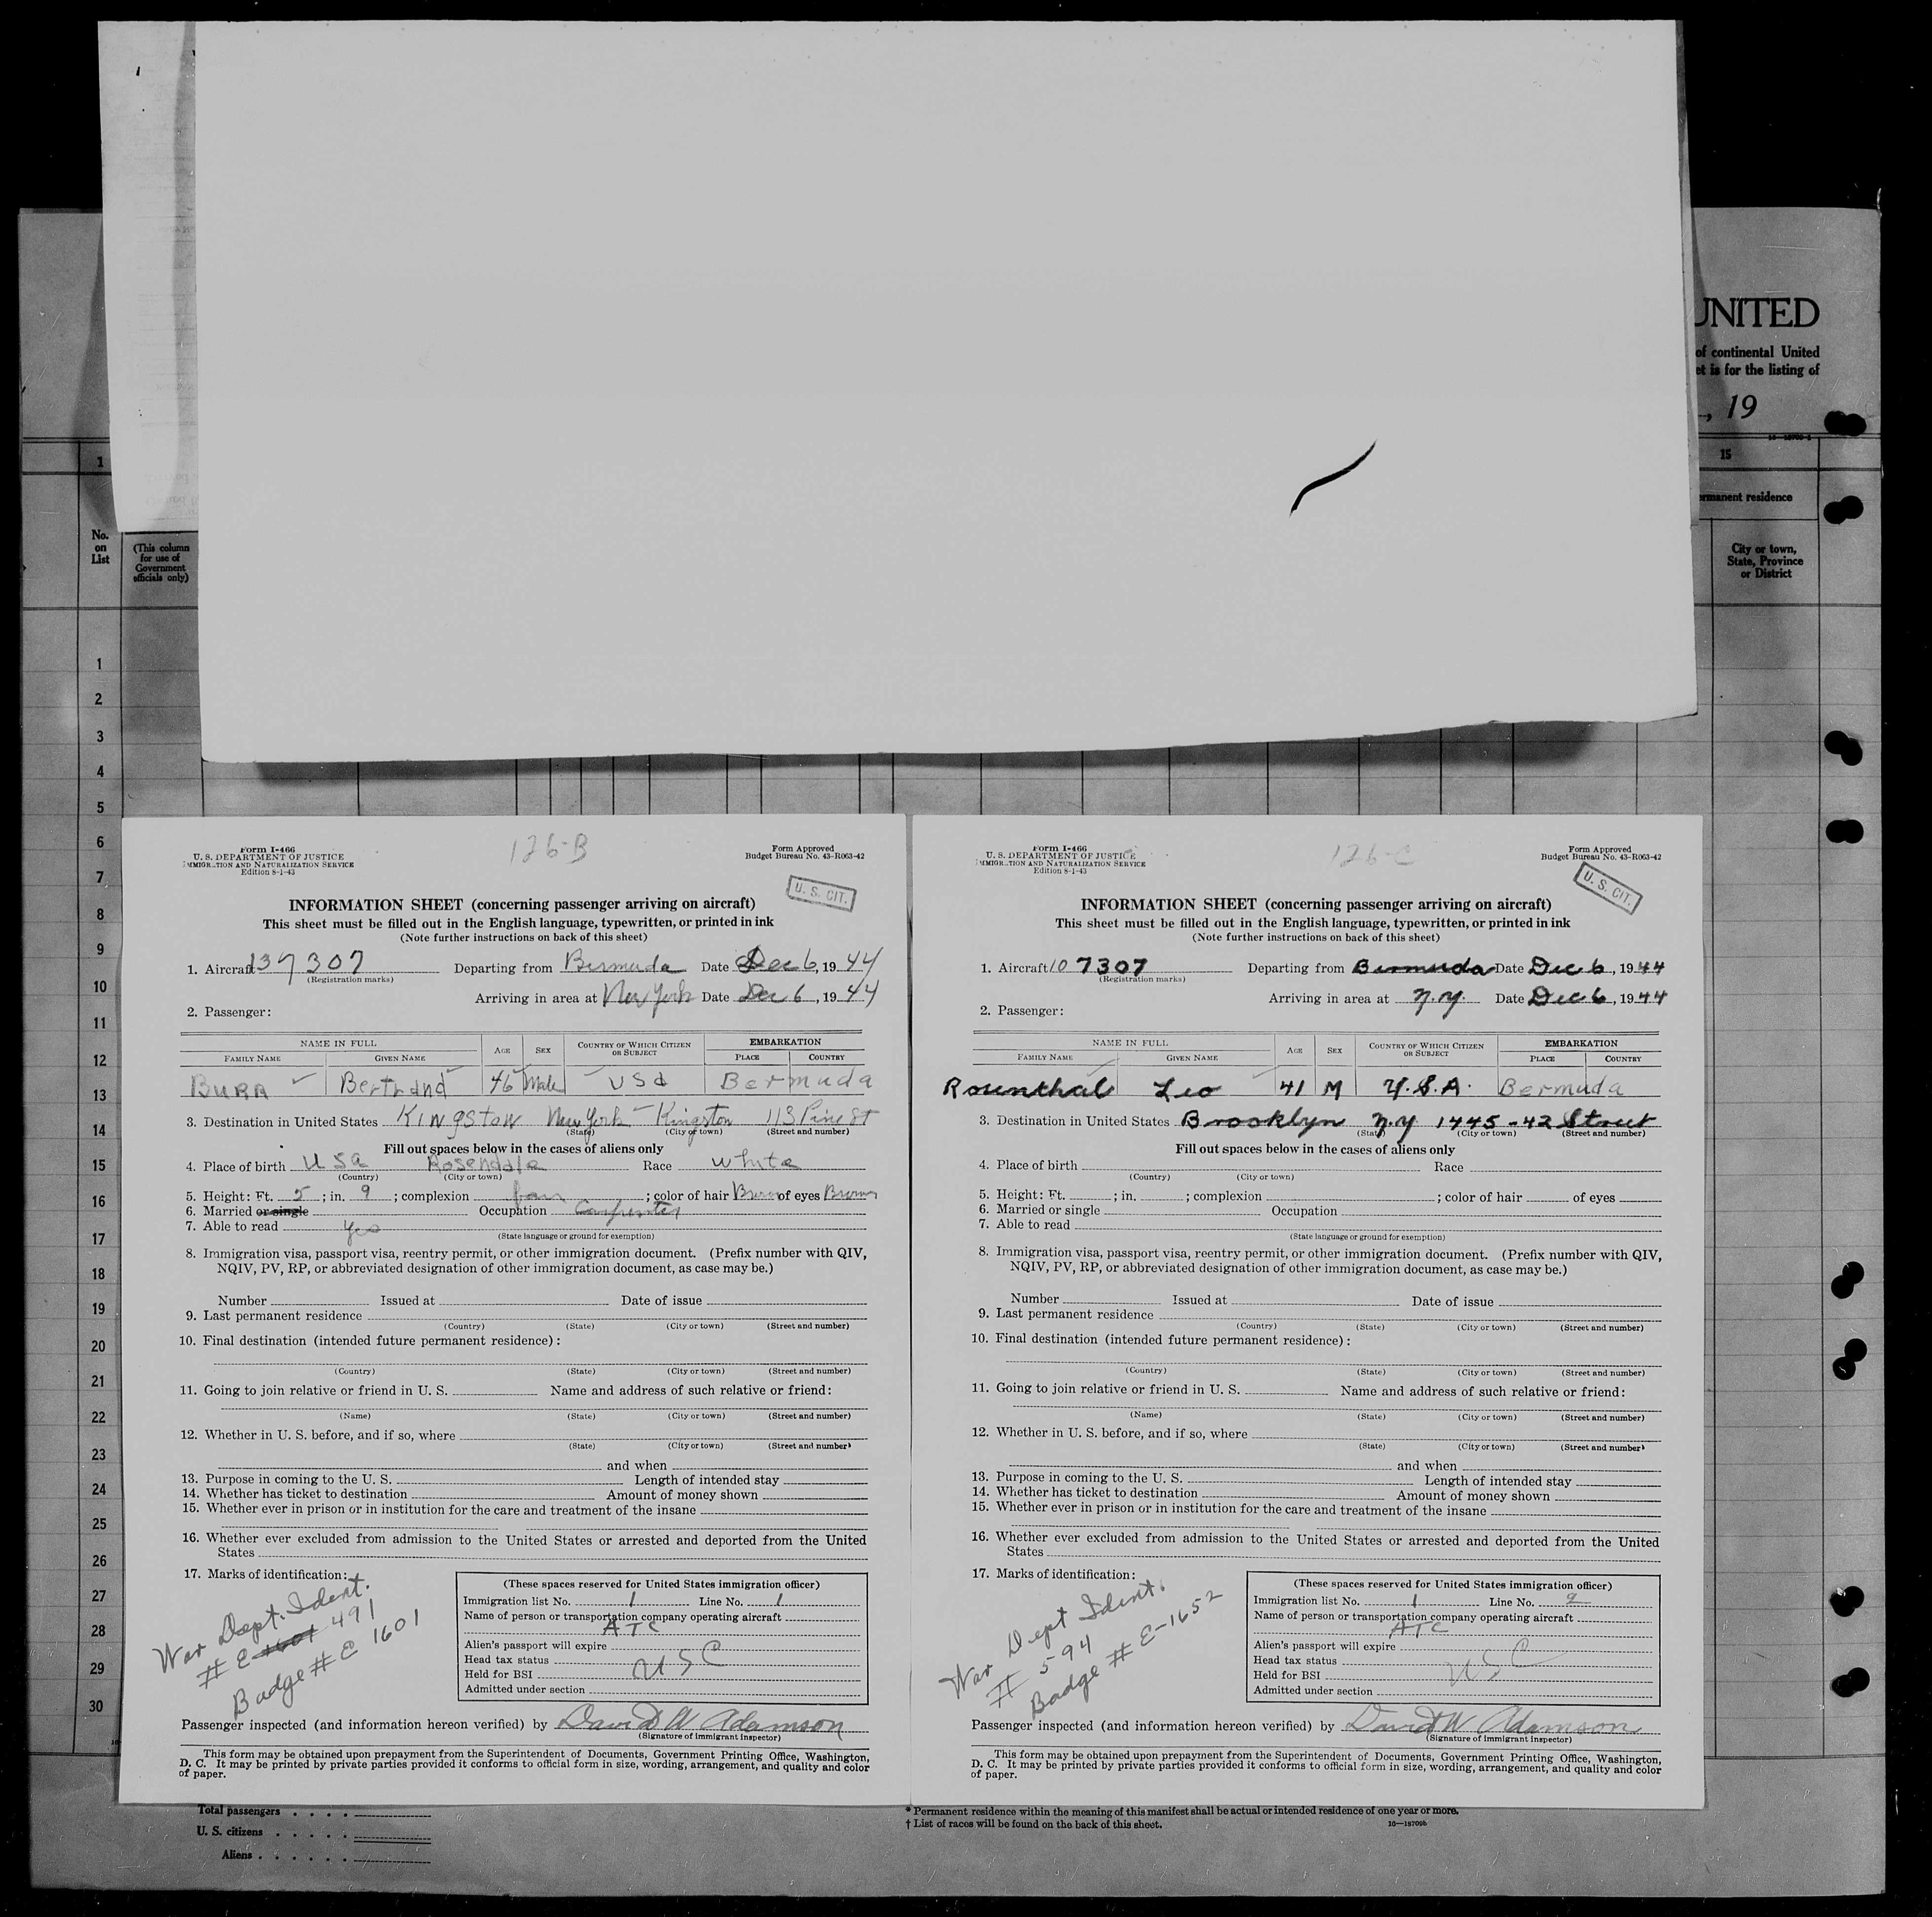 UNITED
of continental United
et is for the listing of
, 19
1
15
rmanent residence
No.
on
List
(This column
for use of
Government
officials only)
City or town,
State, Province
or District
1
2
3
4
5
6
7
8
9
10
11
12
13
14
15
16
17
18
19
20
21
22
23
24
25
26
27
28
29
30
Form I-466
U. S. DEPARTMENT OF JUSTICE
IMMIGRATION AND NATURALIZATION SERVICE
Edition 8-1-43
126-B
Form Approved
Budget Bureau No. 43-R063-42
U. S. CIT.
INFORMATION SHEET (concerning passenger arriving on aircraft)
This sheet must be filled out in the English language, typewritten, or printed in ink
(Note further instructions on back of this sheet)
1. Aircraft 137307 Departing from Bermuda Date Dec 6, 1944
(Registration marks)
Arriving in area at New York Date Dec 6, 1944
2. Passenger:
NAME IN FULL AGE SEX COUNTRY OF WHICH CITIZEN OR SUBJECT EMBARKATION
FAMILY NAME GIVEN NAME PLACE COUNTRY
BURR Bertrand 46 Male USA Bermuda
3. Destination in United States Kingston New York Kingston 113 Pine St
(State) (City or town) (Street and number)
Fill out spaces below in the cases of aliens only
4. Place of birth USA Rosendale Race White
(Country) (City or town)
5. Height: Ft. 5; in. 9; complexion fair; color of hair Brown of eyes Brown
6. Married or single Occupation Carpenter
7. Able to read Yes
(State language or ground for exemption)
8. Immigration visa, passport visa, reentry permit, or other immigration document. (Prefix number with QIV,
NQIV, PV, RP, or abbreviated designation of other immigration document, as case may be.)
Number Issued at Date of issue
9. Last permanent residence
(Country) (State) (City or town) (Street and number)
10. Final destination (intended future permanent residence):
(Country) (State) (City or town) (Street and number)
11. Going to join relative or friend in U. S. Name and address of such relative or friend:
(Name) (State) (City or town) (Street and number)
12. Whether in U. S. before, and if so, where
(State) (City or town) (Street and number)
and when
13. Purpose in coming to the U. S. Length of intended stay
14. Whether has ticket to destination Amount of money shown
15. Whether ever in prison or in institution for the care and treatment of the insane
16. Whether ever excluded from admission to the United States or arrested and deported from the United
States
17. Marks of identification:
War Dept. Ident.
# E 1601 491
Badge # E 1601
(These spaces reserved for United States immigration officer)
Immigration list No. 1 Line No. 1
Name of person or transportation company operating aircraft
ATC
Alien's passport will expire
Head tax status
Held for BSI USC
Admitted under section
Passenger inspected (and information hereon verified) by David W Adamson
(Signature of immigrant inspector)
This form may be obtained upon prepayment from the Superintendent of Documents, Government Printing Office, Washington,
D. C. It may be printed by private parties provided it conforms to official form in size, wording, arrangement, and quality and color
of paper.
Form I-466
U. S. DEPARTMENT OF JUSTICE
IMMIGRATION AND NATURALIZATION SERVICE
Edition 8-1-43
126-C
Form Approved
Budget Bureau No. 43-R063-42
U. S. CIT.
INFORMATION SHEET (concerning passenger arriving on aircraft)
This sheet must be filled out in the English language, typewritten, or printed in ink
(Note further instructions on back of this sheet)
1. Aircraft 107307 Departing from Bermuda Date Dec 6, 1944
(Registration marks)
Arriving in area at N.Y. Date Dec 6, 1944
2. Passenger:
NAME IN FULL AGE SEX COUNTRY OF WHICH CITIZEN OR SUBJECT EMBARKATION
FAMILY NAME GIVEN NAME PLACE COUNTRY
Rosenthal Leo 41 M U.S.A. Bermuda
3. Destination in United States Brooklyn N.Y 1445-42 Street
(State) (City or town) (Street and number)
Fill out spaces below in the cases of aliens only
4. Place of birth Race
(Country) (City or town)
5. Height: Ft. ; in. ; complexion ; color of hair of eyes
6. Married or single Occupation
7. Able to read
(State language or ground for exemption)
8. Immigration visa, passport visa, reentry permit, or other immigration document. (Prefix number with QIV,
NQIV, PV, RP, or abbreviated designation of other immigration document, as case may be.)
Number Issued at Date of issue
9. Last permanent residence
(Country) (State) (City or town) (Street and number)
10. Final destination (intended future permanent residence):
(Country) (State) (City or town) (Street and number)
11. Going to join relative or friend in U. S. Name and address of such relative or friend:
(Name) (State) (City or town) (Street and number)
12. Whether in U. S. before, and if so, where
(State) (City or town) (Street and number)
and when
13. Purpose in coming to the U. S. Length of intended stay
14. Whether has ticket to destination Amount of money shown
15. Whether ever in prison or in institution for the care and treatment of the insane
16. Whether ever excluded from admission to the United States or arrested and deported from the United
States
17. Marks of identification:
War Dept Ident.
# 594
Badge # E-1652
(These spaces reserved for United States immigration officer)
Immigration list No. 1 Line No. 2
Name of person or transportation company operating aircraft
ATC
Alien's passport will expire
Head tax status
Held for BSI USC
Admitted under section
Passenger inspected (and information hereon verified) by David W Adamson
(Signature of immigrant inspector)
This form may be obtained upon prepayment from the Superintendent of Documents, Government Printing Office, Washington,
D. C. It may be printed by private parties provided it conforms to official form in size, wording, arrangement, and quality and color
of paper.
Total passengers
U. S. citizens
Aliens
* Permanent residence within the meaning of this manifest shall be actual or intended residence of one year or more.
† List of races will be found on the back of this sheet.
16—18709b